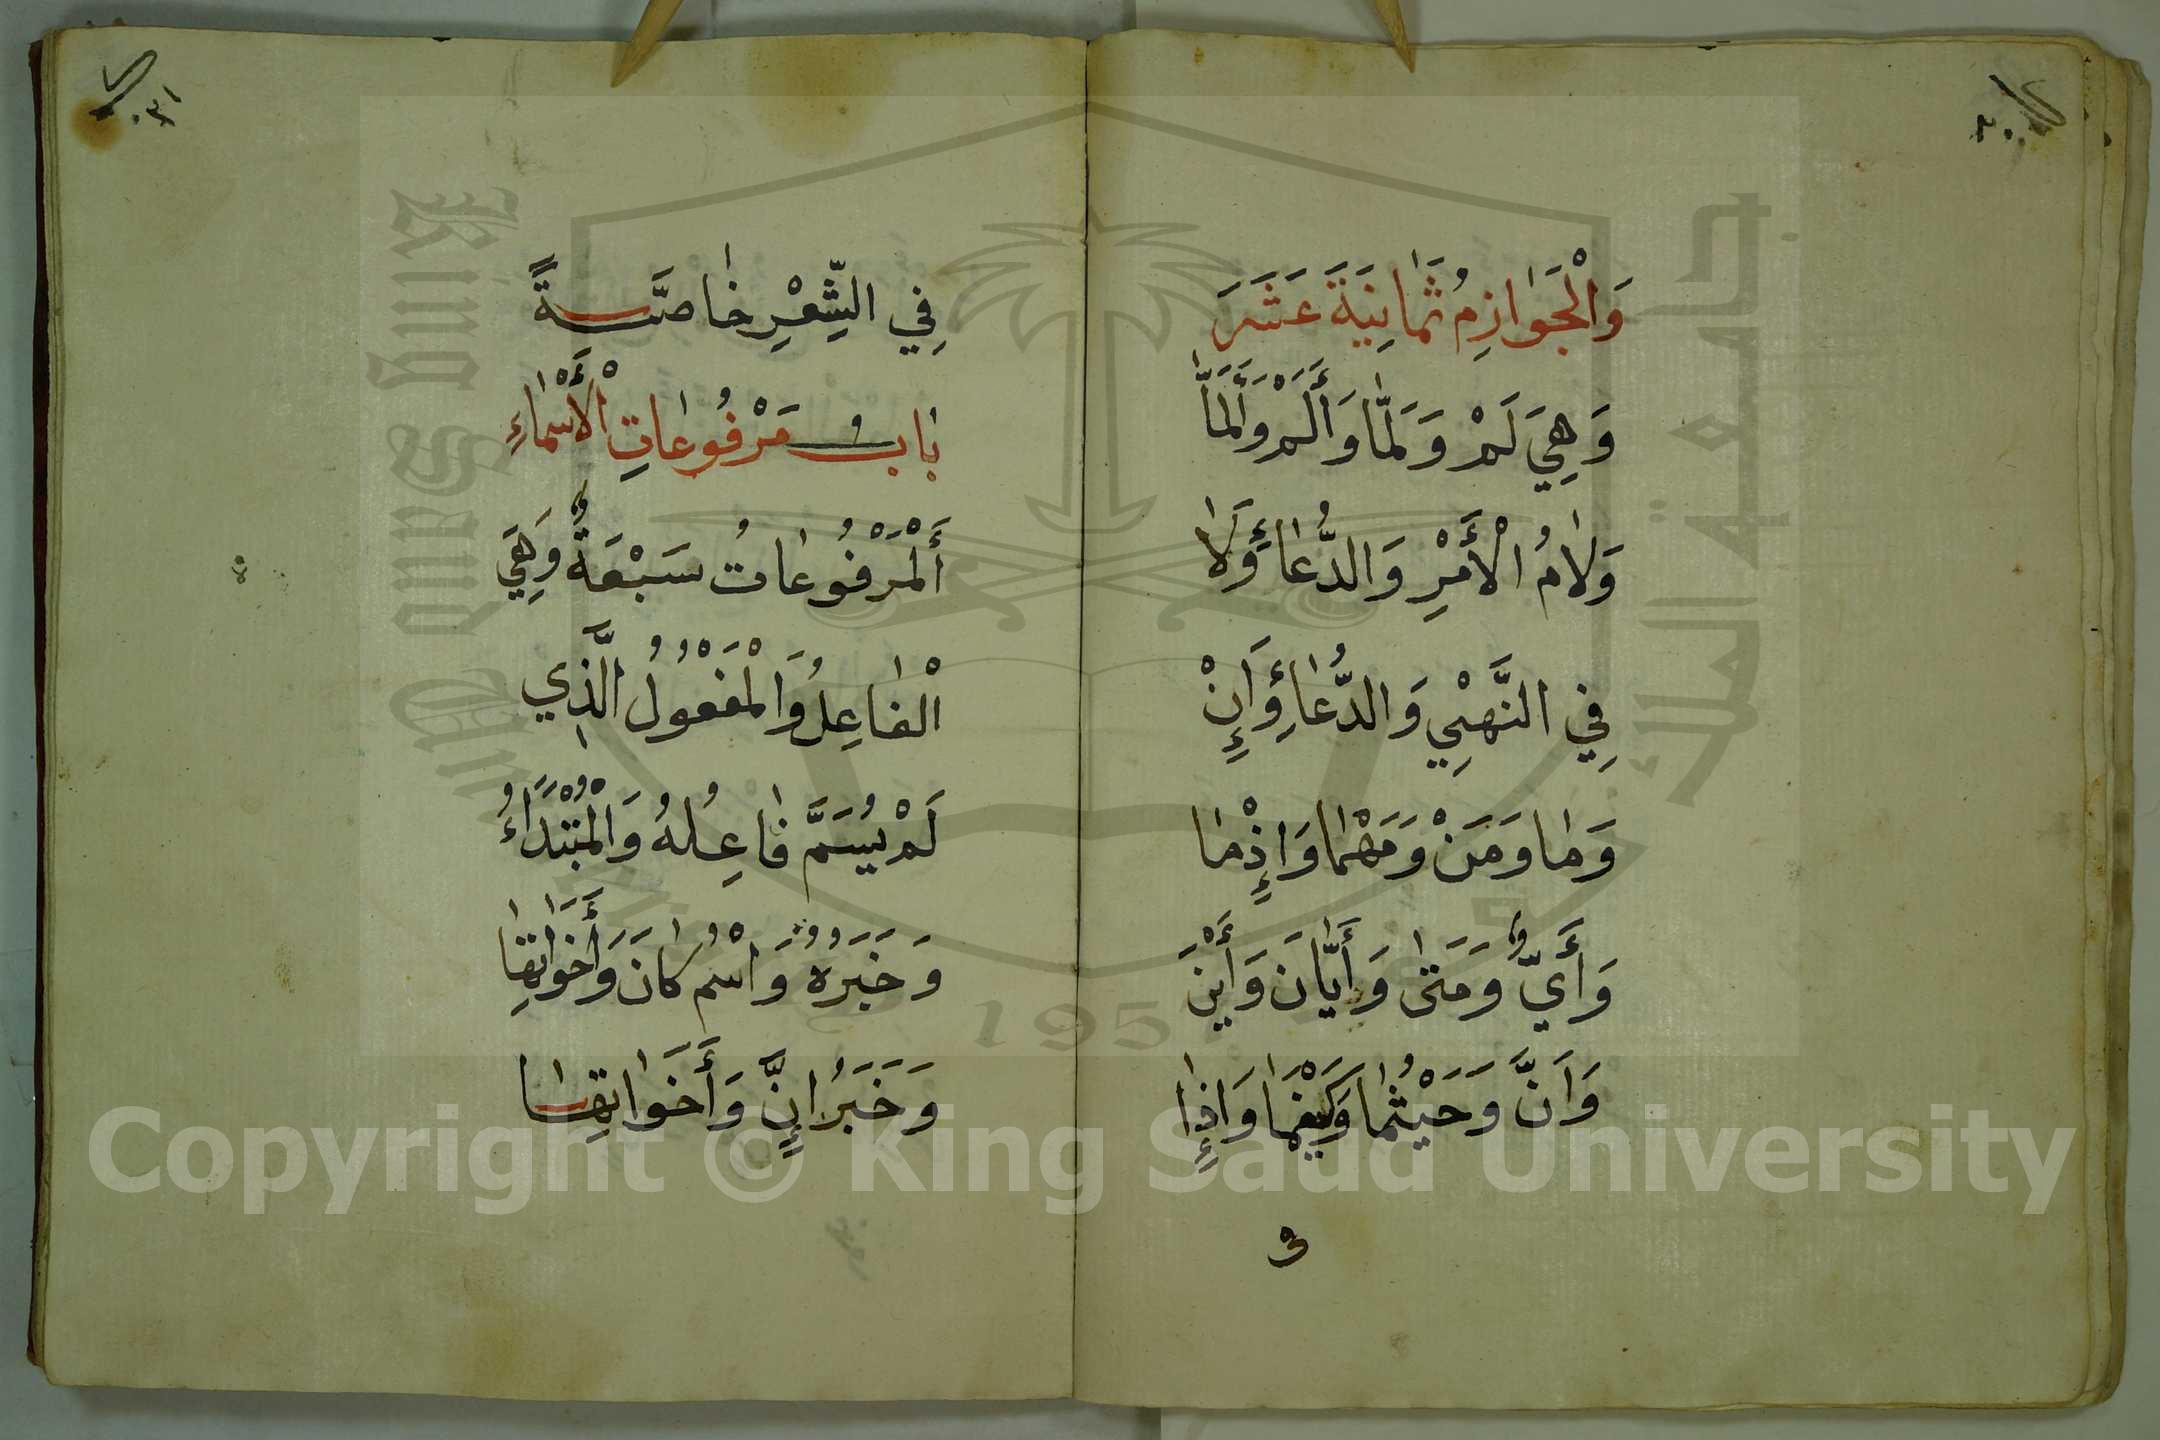 وَالْجَوَازِمُ ثَمَانِيَةَ عَشَرَ
وَهِيَ لَمْ وَلَمَّا وَأَلَمْ وَأَلَمَّا
وَلَامُ الْأَمْرِ وَالدُّعَاءِ وَلَا
فِي النَّهْيِ وَالدُّعَاءِ وَإِنْ
وَمَا وَمَنْ وَمَهْمَا وَإِذْمَا
وَأَيٌّ وَمَتَى وَأَيَّانَ وَأَيْنَ
وَأَنَّ وَحَيْثُمَا وَكَيْفَمَا وَإِذَا
فى
فِي الشِّعْرِ خَاصَّةً
بَابُ مَرْفُوعَاتِ الْأَسْمَاءِ
أَلْمَرْفُوعَاتُ سَبْعَةٌ وَهِيَ
الْفَاعِلُ وَالْمَفْعُولُ الَّذِي
لَمْ يُسَمَّ فَاعِلُهُ وَالْمُبْتَدَاءُ
وَخَبَرُهُ وَاسْمُ كَانَ وَأَخَوَاتِهَا
وَخَبَرُ إِنَّ وَأَخَوَاتِهَا
King Saud University
جامعة الملك
195
Copyright © King Saud University